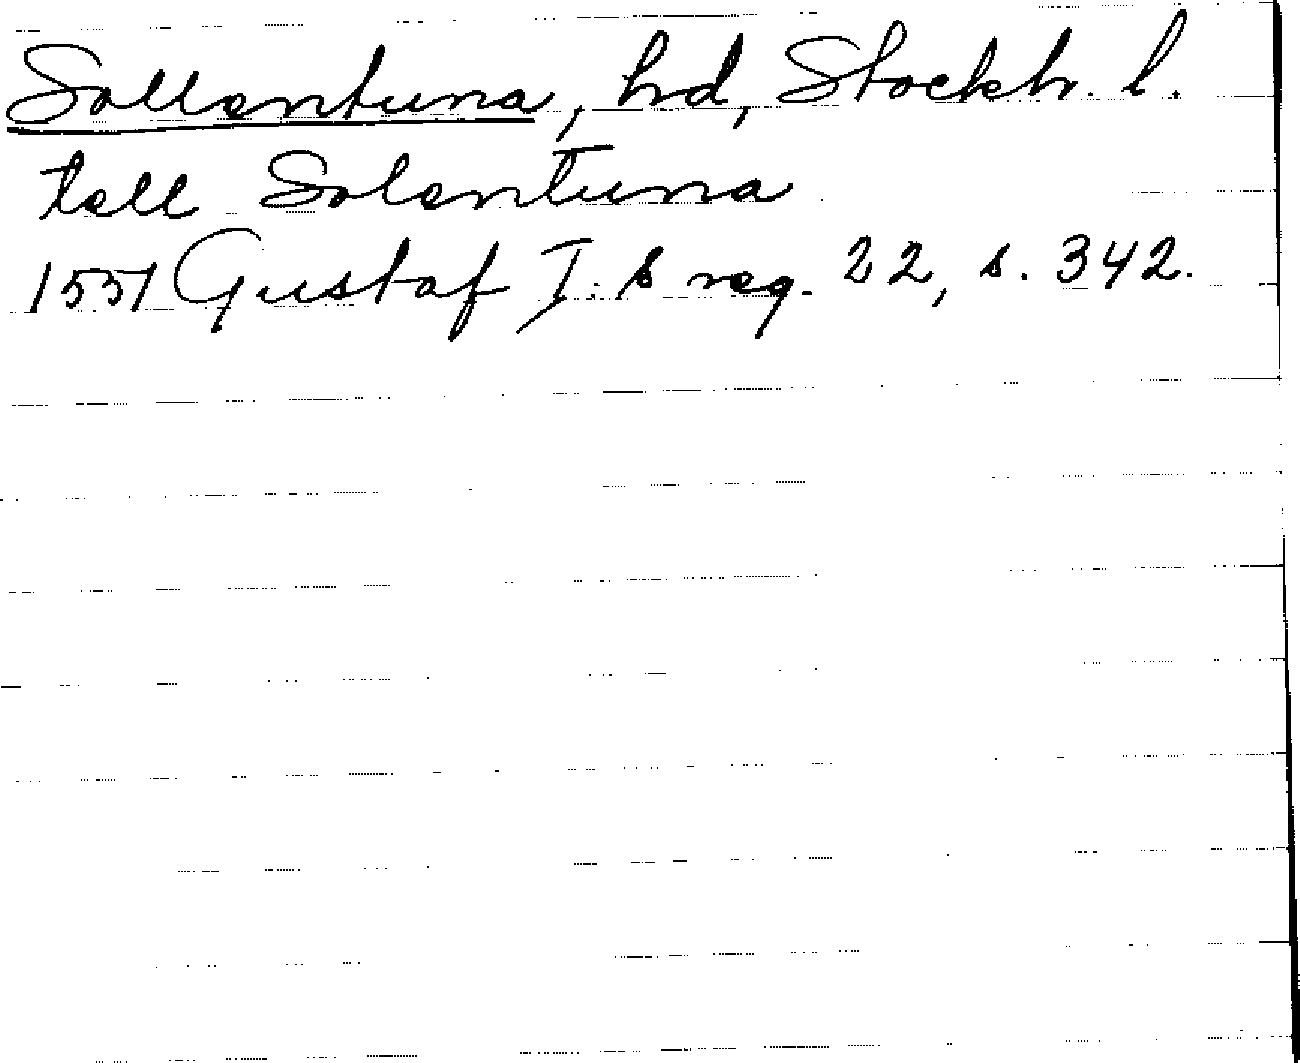 Sollentuna, hd, Stockh. l.
tell Solentuna
1551 Gustaf I:s reg. 22, s. 342.